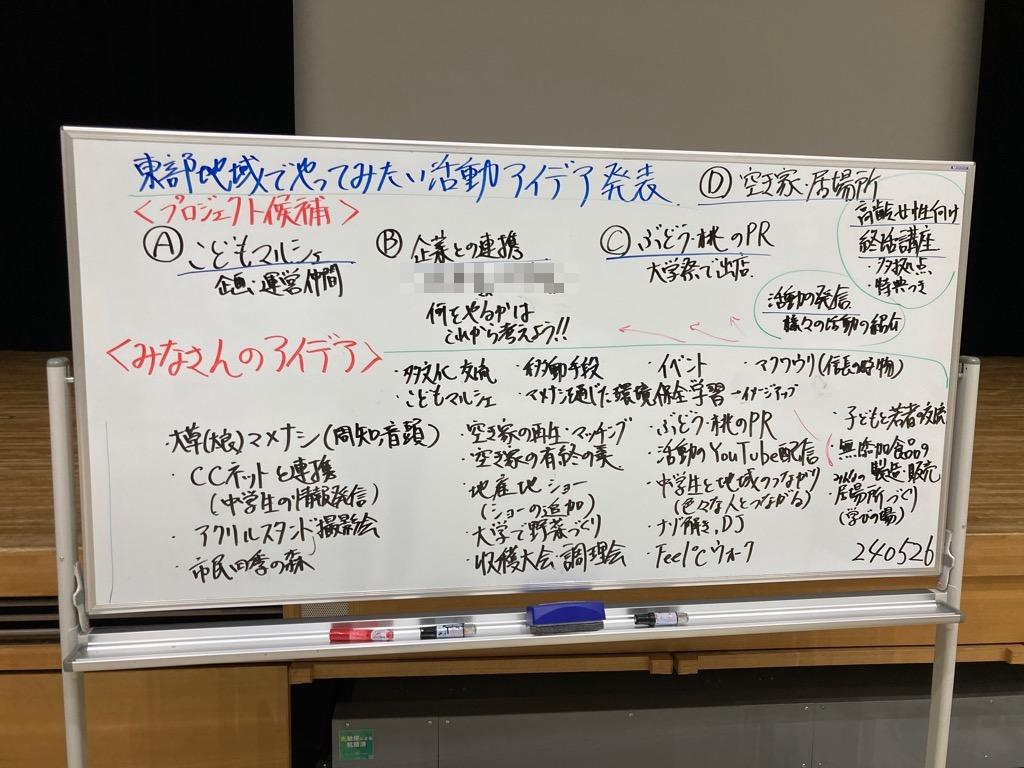 東部地域でやってみたい活動アイデア発表
<プロジェクト候補>
Ⓐ こどもマルシェ
企画・運営仲間
Ⓑ 企業との連携
何をやるかは
これから考えよう!!
Ⓒ ぶどう・桃のPR
大学祭で出店
Ⓓ 空き家・居場所
高齢女性向け
終活講座
・多拠点
・特典つき
活動の発信
様々の活動の紹介
<みなさんのアイデア>
・多文化交流
・移動手段
・イベント
・マクワウリ(信長の好物)
・こどもマルシェ
・マメナシを通じた環境保全学習→イメージマップ
・大草(太鼓)マメナシ(周知・音頭)
・CCネットと連携
(中学生の情報発信)
・アクリルスタンド撮影会
・市民四季の森
・空き家の再生・マッチング
・空き家の有終の美
・地産地ショー
(ショーの追加)
・大学で野菜づくり
・収穫大会・調理会
・ぶどう・桃のPR
・活動のYouTube配信
・中学生と地域のつながり
(色々な人とつながる)
・ナゾ解き、DJ
・Feel℃ウォーク
・子どもと若者の交流
・無添加食品の
製造・販売
・居場所づくり
(学びの場)
240526